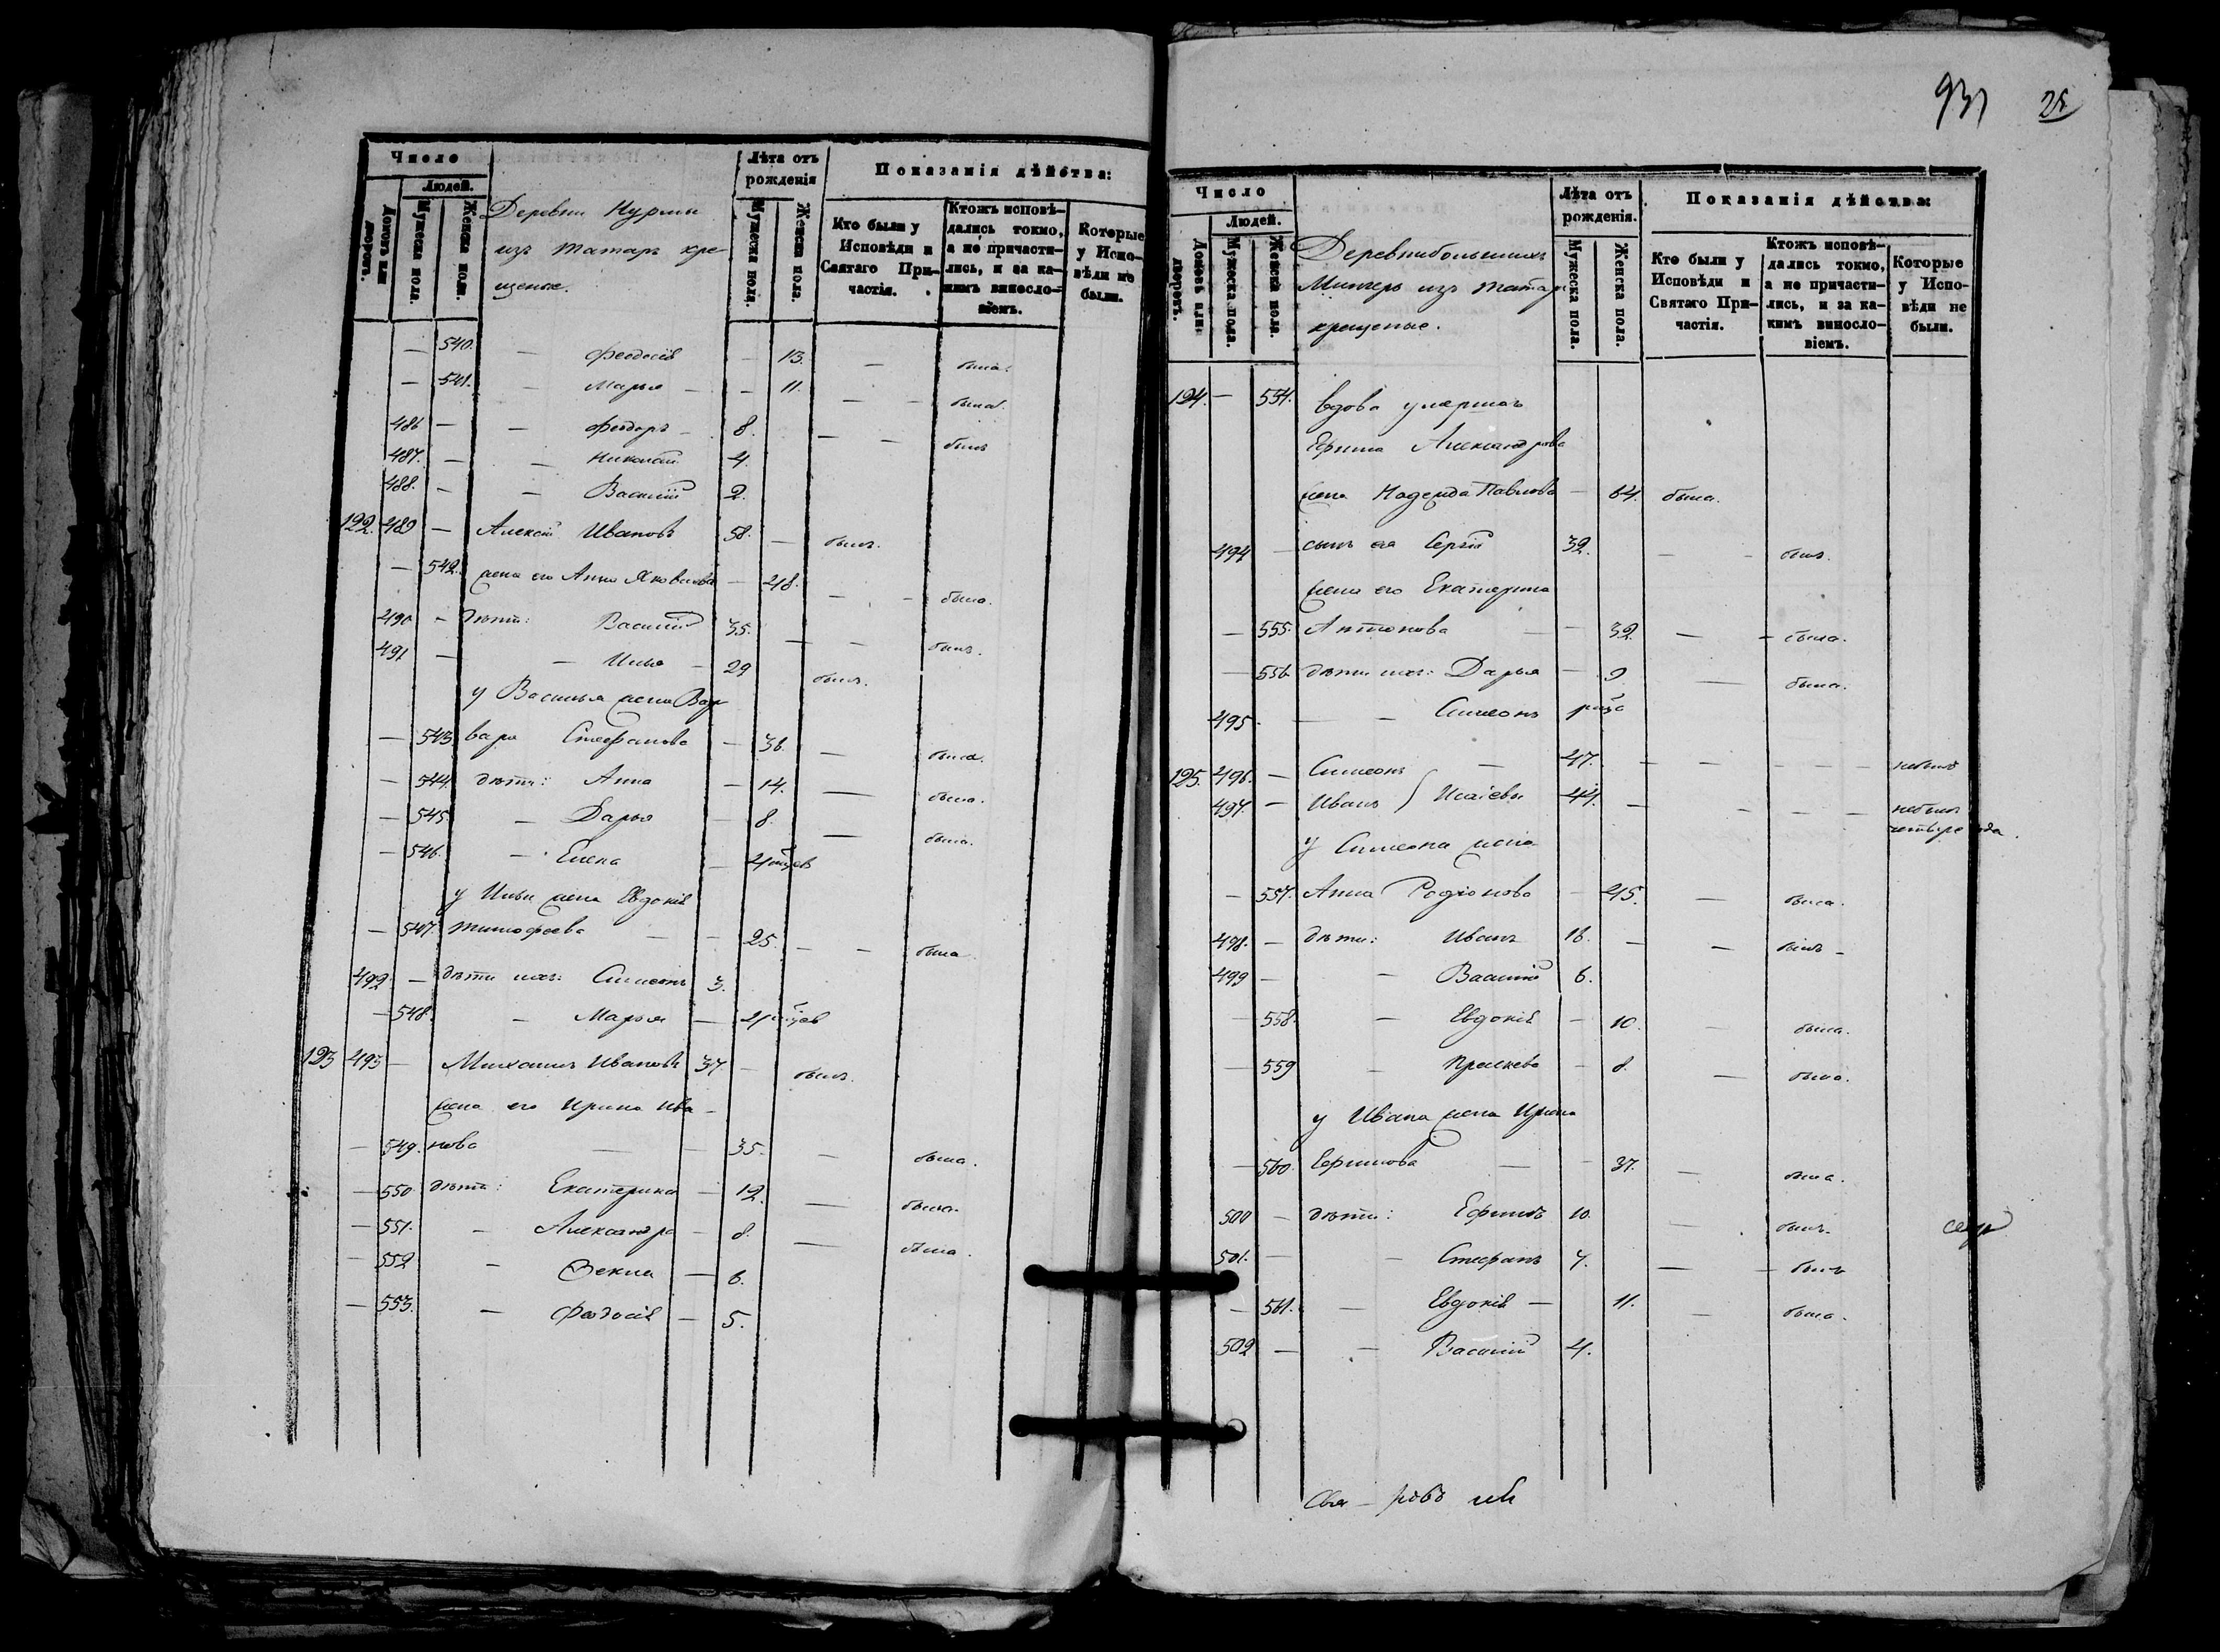 Число
Людей.
Домовъ или дворовъ.
Мужеска пола.
Женска пола.
Деревни Нурмы
изъ татаръ кре-
щеные.
Лѣта отъ рожденія
Мужеска пола.
Женска пола.
Показанія дѣйства:
Кто были у Исповѣди и Святаго При-частія.
Ктожъ исповѣ-дались токмо, а не причасти-лись, и за ка-кимъ винословіемъ.
Которые у Испо-вѣди не были.
— 540. — Феодосія — 13. — была.
— 541. — Марья — — 11. — — была.
486 — — Феодоръ — 8. — — былъ
487. — — Николай 4.
488. — — Василій 2.
122. 489 — Алексій Ивановъ 58. — былъ.
— 542. жена его Анна Яковлева — 48. — — была.
490 — дѣти: Василій 35. — — былъ.
491 — — Илья — 29 былъ.
у Василья жена Вар
— 543. вара Стефанова — 36. — была.
— 544. дѣти: Анна — 14. — была.
— 545. — Дарья — 8. — была.
— 546. — Елена — 4 мѣсяцев
у Ильи жена Евдокія
— 547. Тимофеева — — 25. — — была.
492 — дѣти ихъ: Симеонъ 3.
— 548. — Марья —
123 493 — Михаилъ Ивановъ 37 — былъ.
жена его Ирина Ива-
— 549. нова — — 35. — была.
— 550 дѣти: Екатерина — 12. — была.
— 551. — Александра — 8. — была.
— 552 — Фекла — 6.
— 553. — Феодосія — 5.
931
Число
Людей.
Домовъ или дворовъ.
Мужеска пола.
Женска пола.
Деревни большихъ
изъ татаръ
крещеные.
Лѣта отъ рожденія.
Мужеска пола.
Женска пола.
Показанія дѣйства:
Кто были у Исповѣди и Святаго При-частія.
Ктожъ исповѣ-дались токмо, а не причасти-лись, и за ка-кимъ винословіемъ.
Которые у Испо-вѣди не были.
124. — 554. вдова умершаго
Ефима Александрова
жена Надежда Павлова — 64. была.
494 — сынъ ея Сергій 32. — — былъ.
жена его Екатерина
— 555. Антонова — — 32. — — была.
— 556 дѣти ихъ: Дарья — 9 — была.
495 — — Симеонъ
125. 496. — Симеонъ — 47. — — — — — небылъ
497. — Иванъ } Исаіевы 44. — — — — небылъ
четыре года.
у Симеона жена
— 557. Анна Родіонова — 45. — была.
498. — дѣти: Иванъ 16. — — былъ —
499 — — Василій 6.
— 558. — Евдокія — 10. — была.
— 559 — Прасковья — 8. — была.
у Ивана жена Ирина
— 560. Ефимова — — 37. — была.
500 — дѣти: Ефимъ 10. — былъ.
501. — — Стефанъ 7. — — былъ
— 561. — Евдокія — 11. — была.
502 — — Василій 4.